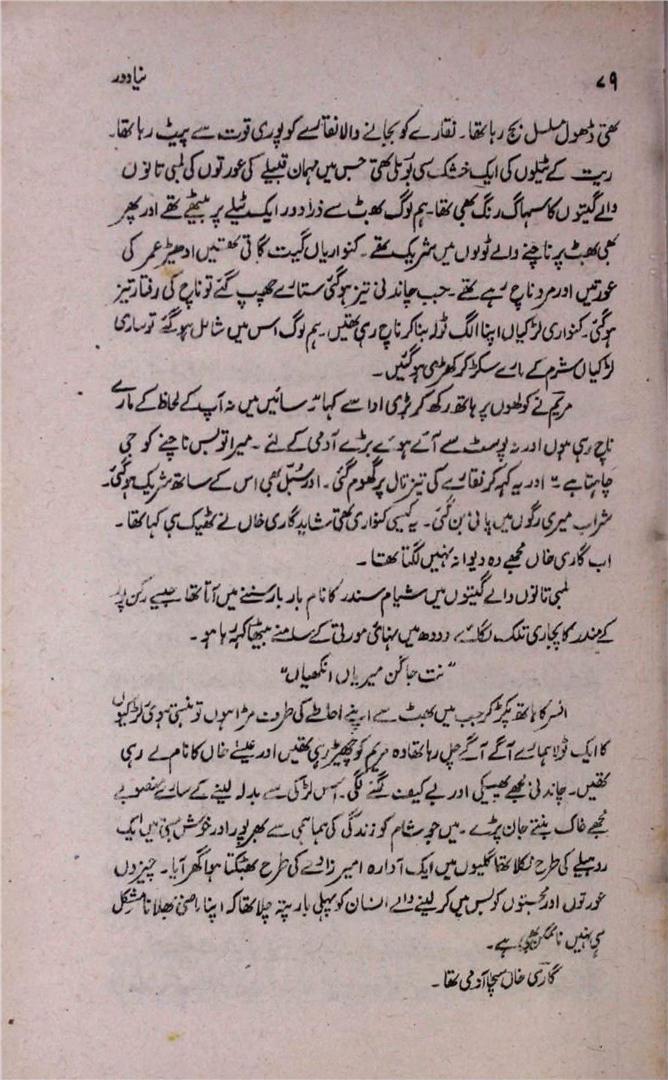 ۷۹ نیا دور
تھی ڈھول مسلسل بج رہا تھا۔ نقارے کو بجانے والا نقارے کو پوری قوت سے پیٹ رہا تھا۔
ریت کے ٹیلوں کی ایک خشک سی بُو تھی جس میں مہمان قبیلے کی عورتوں کی لمبی تانوں
والے گیتوں کا سہاگ رنگ بھی تھا۔ ہم لوگ کھبٹ سے ذرا دور ایک ٹیلے پر بیٹھے تھے اور پھر
بھی کھبٹ پر ناچنے والے ٹولوں میں شریک تھے۔ کنواریاں گیت گاتی تھیں ادھیڑ عمر کی
عورتیں اور مرد ناچ رہے تھے۔ جب چاندنی تیز ہو گئی ستارے چھپ گئے تو ناچ کی رفتار تیز
ہو گئی۔ کنواری لڑکیاں اپنا الگ ٹولہ بنا کر ناچ رہی تھیں۔ ہم لوگ اس میں شامل ہو گئے تو ساری
لڑکیاں شرم کے مارے سکڑ کر کھڑی ہو گئیں۔
مریم نے کولھوں پر ہاتھ رکھ کر بڑی ادا سے کہا "سائیں میں نہ آپ کے لحاظ کے مارے
ناچ رہی ہوں اور نہ پوسٹ سے آئے ہوئے بڑے آدمی کے لئے۔ میرا تو بس ناچنے کو جی
چاہتا ہے" اور یہ کہہ کر نقارے کی تیز تال پر گھوم گئی۔ اور سُنبل بھی اس کے ساتھ شریک ہو گئی۔
شراب میری رگوں میں پانی بن گئی۔ یہ کیسی کنواری تھی شاید گاری خاں نے ٹھیک ہی کہا تھا۔
اب گاری خاں مجھے وہ دیوانہ نہیں لگتا تھا۔
لمبی تانوں والے گیتوں میں شیام سندر کا نام بار بار سننے میں آتا تھا جیسے رگن پور
کے مندر کا پجاری تلک لگائے دودھ میں نہائی مورتی کے سامنے بیٹھا کہہ رہا ہو۔
"نت جاگن میریاں انکھیاں"
افسر کا ہاتھ پکڑ کر جب میں کھبٹ سے اپنے احاطے کی طرف مڑا ہوں تو ہنستی ہوئی لڑکیوں
کا ایک ٹولا ہمارے آگے آگے چل رہا تھا وہ مریم کو چھیڑ رہی تھیں اور عیسے خاں کا نام لے رہی
تھیں۔ چاندنی مجھے پھیکی اور بے کیف لگنے لگی۔ اس لڑکی سے بدلہ لینے کے سارے منصوبے
مجھے خاک بنتے جان پڑے۔ میں جو شام کو زندگی کی ہماہمی سے بھر پور اور خوش مستی میں ایک
ریلے کی طرح نکلا تھا گلیوں میں ایک آوارہ امیر زادے کی طرح بھٹکتا ہوا گھر آیا۔ چیزوں
عورتوں اور محبتوں کو بس میں کر لینے والے انسان کو پہلی بار پتہ چلا تھا کہ اپنا ماضی بھلانا مشکل
ہی نہیں ناممکن بھی ہے۔
گاری خاں سچا آدمی تھا۔